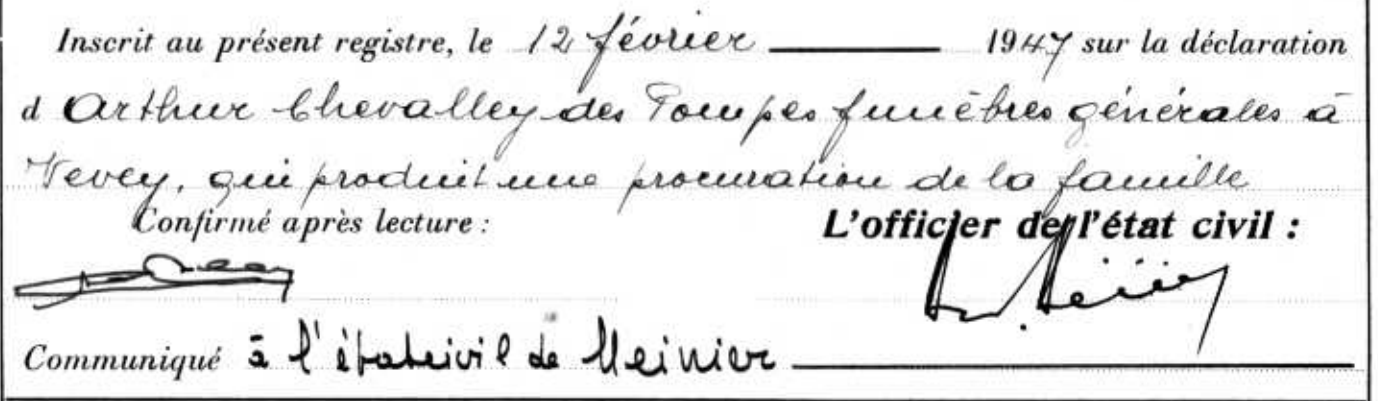 Inscrit au présent registre, le 12 février 1947 sur la déclaration
d Arthur Chevalley des Pompes funèbres générales à
Vevey, qui produit une procuration de la famille
Confirmé après lecture : L'officier de l'état civil :
Communiqué à l'état civil de Meinier